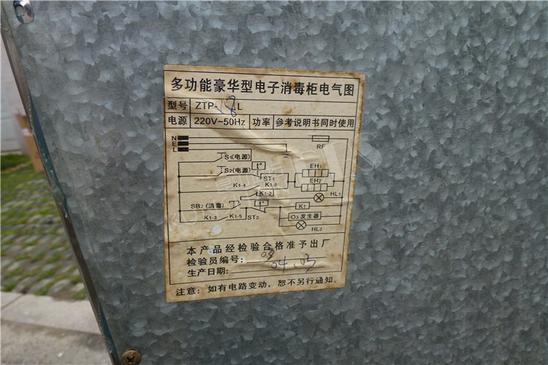 多功能豪华型电子消毒柜电气图
型号 ZTP- 8L
电源 220V~50Hz 功率 参考说明书同时使用
N
E
L
RF
S1(电源)
S2(电源)
ST1
EH1
EH2
K1-4
K1-1
K1-2
HL1
SB2(消毒)
K1
K1-3
K1-5
ST2
O3发生器
HL2
本产品经检验合格准予出厂
检验员编号:
生产日期:
注意:如有电路变动,恕不另行通知.